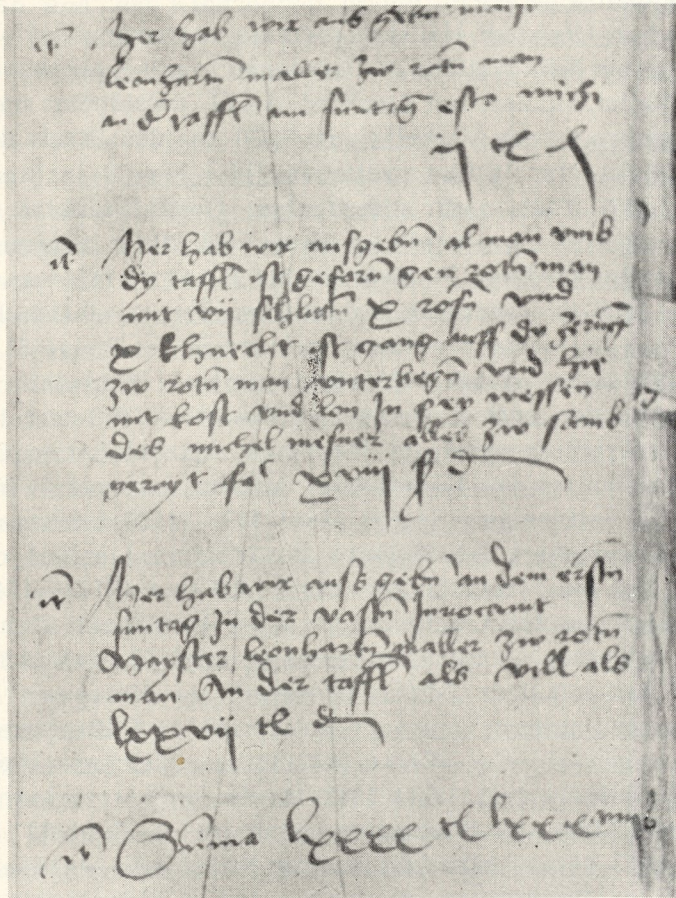 it Mer hab wir aus gebn̄ mayst
leonhartn̄ maller zw rotn̄ man
an d taffl am suntag esto michi
ij tl d
it Mer hab wir ausgebn̄ al man umb
dy taffl ist gefarn̄ gen rotn̄ man
mit vij schlittn̄ x rosn̄ und
x khnecht ist gang auff dy zerung
zw rotn̄ man unterbegn̄ und hie
mit kost und lon In wessen
des michel mesner alles zw samb
gerayt fac̄ xviij d
it Mer hab wir auss gebn̄ an dem erstn̄
suntag In der vastn̄ Inuocauit
Mayster leonhartn̄ maller zw rotn̄
man An der taffl als vill als
lxxvij tl d
it Suma lxxxx tl lxxx